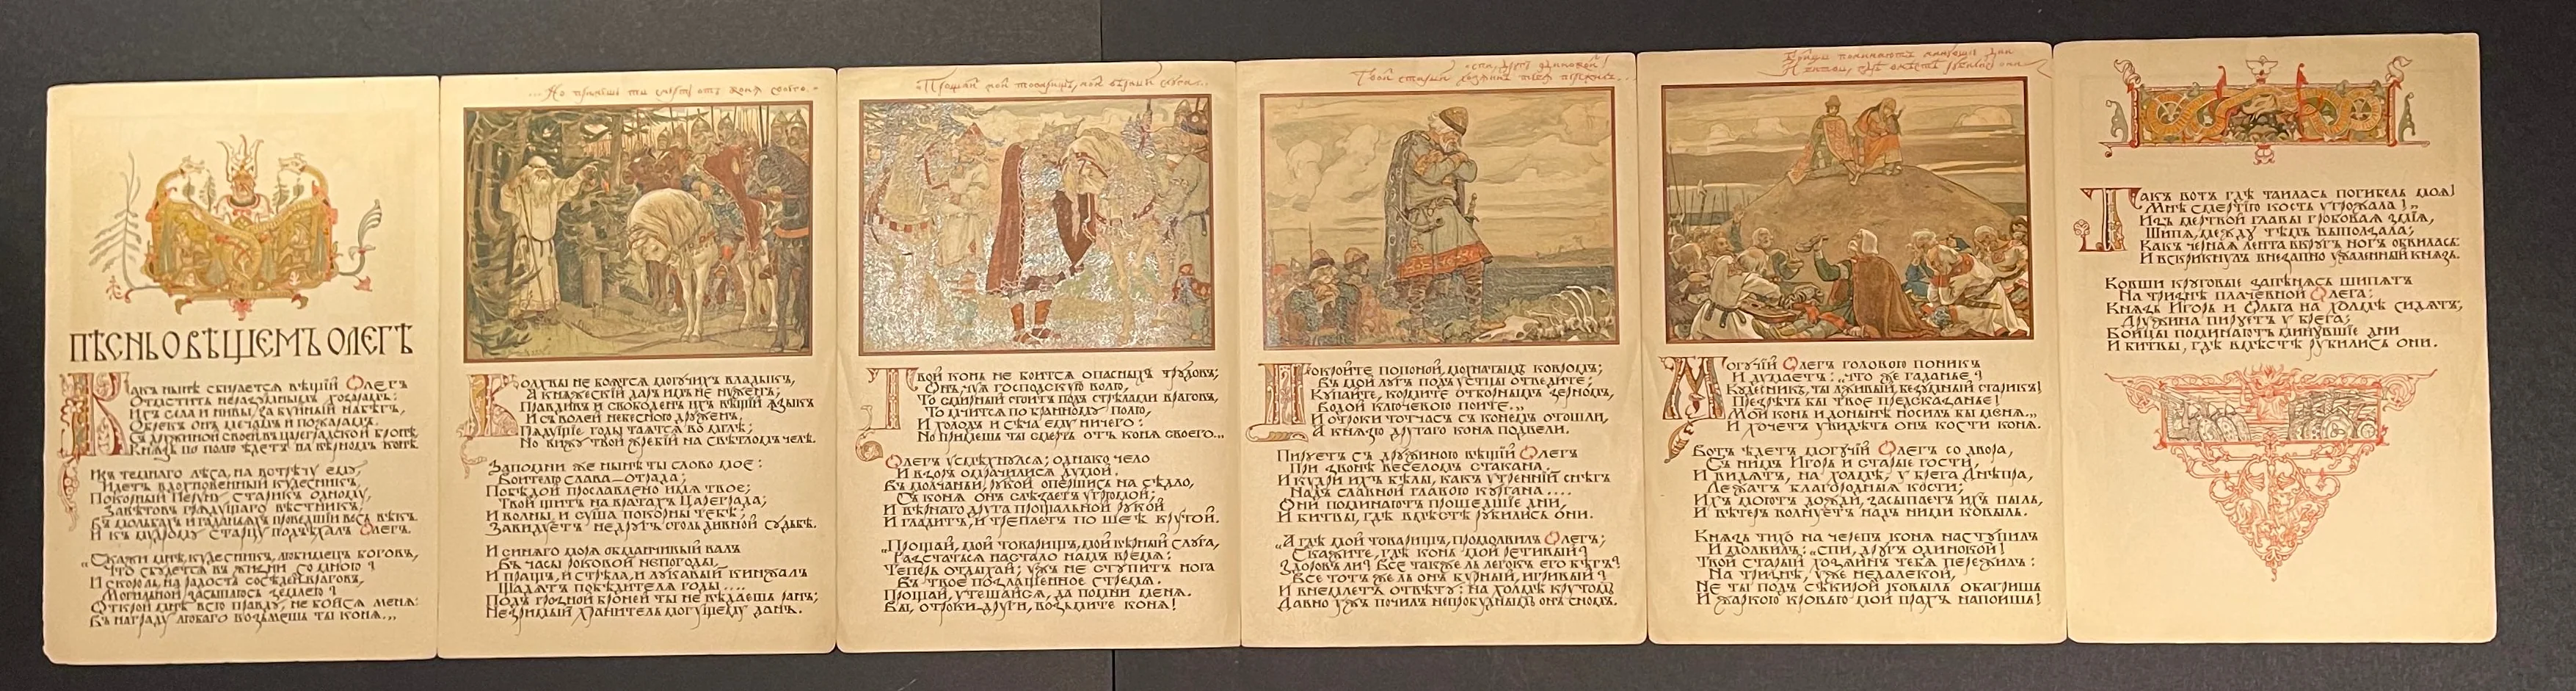 ПѢСНЬ О ВѢЩЕМЪ ОЛЕГѢ
Какъ нынѣ сбирается вѣщій Олегъ
Отмстить неразумнымъ хозарамъ:
Ихъ села и нивы, за буйный набѣгъ,
Обрекъ онъ мечамъ и пожарамъ.
Съ дружиной своей, въ цареградской бронѣ,
Князь по полю ѣдетъ на вѣрномъ конѣ.
Изъ темнаго лѣса, на встрѣчу ему,
Идетъ вдохновенный кудесникъ,
Покорный Перуну старикъ одному,
Завѣтовъ грядущаго вѣстникъ,
Въ мольбахъ и гаданьяхъ проведшій весь вѣкъ.
И къ мудрому старцу подъѣхалъ Олегъ.
„Скажи мнѣ, кудесникъ, любимецъ боговъ,
Что сбудется въ жизни со мною?
И скоро ль, на радость сосѣдей-враговъ,
Могильной засыплюсь землею?
Открой мнѣ всю правду, не бойся меня:
Въ награду любаго возьмешь ты коня.„
...Но примешь ты смерть отъ коня своего.
Волхвы не боятся могучихъ владыкъ,
А княжескій даръ имъ не нуженъ;
Правдивъ и свободенъ ихъ вѣщій языкъ
И съ волей небесною друженъ.
Грядущіе годы таятся во мглѣ;
Но вижу твой жребій на свѣтломъ челѣ.
Запомни же нынѣ ты слово мое:
Воителю слава—отрада;
Побѣдой прославлено имя твое;
Твой щитъ на вратахъ Цареграда;
И волны, и суша покорны тебѣ;
Завидуетъ недругъ столь дивной судьбѣ.
И синяго моря обманчивый валъ
Въ часы роковой непогоды,
И пращъ, и стрѣла, и лукавый кинжалъ
Щадятъ побѣдителя годы....
Подъ грозной броней ты не вѣдаешь ранъ;
Незримый хранитель могущему данъ.
„Прощай мой товарищъ, мой вѣрный слуга...
Твой конь не боится опасныхъ трудовъ;
Онъ, чуя господскую волю,
То смирный стоитъ подъ стрѣлами враговъ,
То мчится по бранному полю,
И холодъ и сѣча ему ничего:
Но примешь ты смерть отъ коня своего...
Олегъ усмѣхнулся; однако чело
И взоръ омрачилися думой.
Въ молчаньи, рукой опершись на сѣдло,
Съ коня онъ слѣзаетъ угрюмой;
И вѣрнаго друга прощальной рукой
И гладитъ, и треплетъ по шеѣ крутой.
„Прощай, мой товарищъ, мой вѣрный слуга,
Разстаться настало намъ время:
Теперь отдыхай; ужъ не ступитъ нога
Въ твое позлащенное стремя.
Прощай, утѣшайся, да помни меня.
Вы, отроки-други, возьмите коня!
„спи, другъ одинокой!
Твой старый хозяинъ тебя пережилъ...
Покройте попоной, мохнатымъ ковромъ;
Въ мой лугъ подъ устцы отведите;
Купайте, кормите отборнымъ зерномъ,
Водой ключевою поите.„
И отроки тотчасъ съ конемъ отошли,
А князю другаго коня подвели.
Пируетъ съ дружиною вѣщій Олегъ
При звонѣ веселомъ стакана.
И кудри ихъ бѣлы, какъ утренній снѣгъ
Надъ славной главою кургана....
Они поминаютъ прошедшіе дни,
И битвы, гдѣ вмѣстѣ рубились они.
„А гдѣ мой товарищъ, промолвилъ Олегъ;
Скажите, гдѣ конь мой ретивый?
Здоровъ ли? Все также ль легокъ его бѣгъ?
Все тотъ же ль онъ бурный, игривый?
И внемлетъ отвѣту: на холмѣ крутомъ
Давно ужъ почилъ непробуднымъ онъ сномъ.
Бойцы поминаютъ минувшіе дни
И битвы, гдѣ вмѣстѣ рубились они
Могучій Олегъ головою поникъ
И думаетъ: „что же гаданье?
Кудесникъ, ты лживый, безумный старикъ!
Презрѣть бы твое предсказанье!
Мой конь и донынѣ носилъ бы меня.„
И хочетъ увидѣть онъ кости коня.
Вотъ ѣдетъ могучій Олегъ со двора,
Съ нимъ Игорь и старые гости,
И видятъ, на холмѣ, у брега Днѣпра,
Лежатъ благородныя кости;
Ихъ моютъ дожди, засыпаетъ ихъ пыль,
И вѣтеръ волнуетъ надъ ними ковыль.
Князь тихо на черепъ коня наступилъ
И молвилъ: „спи, другъ одинокой!
Твой старый хозяинъ тебя пережилъ:
На тризнѣ, уже недалекой,
Не ты подъ сѣкирой ковыль обагришь
И жаркою кровью мой прахъ напоишь!
Такъ вотъ гдѣ таилась погибель моя!
Мнѣ смертію кость угрожала!„
Изъ мертвой главы гробовая змія,
Шипя, между тѣмъ выползала;
Какъ черная лента вкругъ ногъ обвилась:
И вскрикнулъ внезапно ужаленный князь.
Ковши круговые запѣнясь шипятъ
На тризнѣ плачевной Олега;
Князь Игорь и Ольга на холмѣ сидятъ;
Дружина пируетъ у брега;
Бойцы поминаютъ минувшіе дни
И битвы, гдѣ вмѣстѣ рубились они.